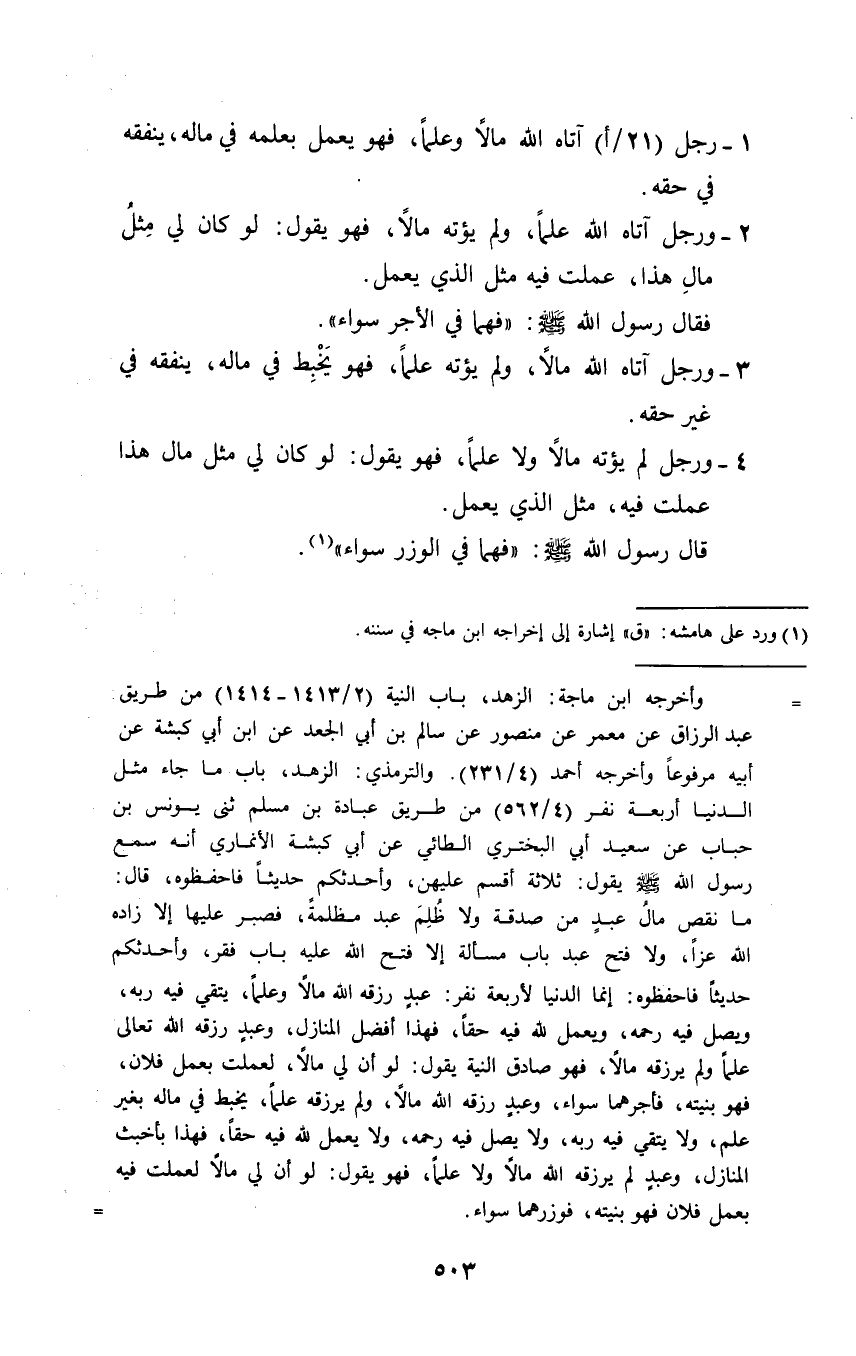 ١ - رجل (٢١/أ) آتاه الله مالًا وعلماً، فهو يعمل بعلمه في ماله، ينفقه
في حقه.
٢ - ورجل آتاه الله علماً، ولم يؤته مالًا، فهو يقول: لو كان لي مِثلُ
مالِ هذا، عملت فيه مثل الذي يعمل.
فقال رسول الله ﷺ: «فهما في الأجر سواء».
٣ - ورجل آتاه الله مالًا، ولم يؤته علماً، فهو يَخْبِط في ماله، ينفقه في
غير حقه.
٤ - ورجل لم يؤته مالًا ولا علماً، فهو يقول: لو كان لي مثل مال هذا
عملت فيه، مثل الذي يعمل.
قال رسول الله ﷺ: «فهما في الوزر سواء»(١).
(١) ورد على هامشه: «ق» إشارة إلى إخراجه ابن ماجه في سننه.
= وأخرجه ابن ماجة: الزهد، باب النية (١٤١٣/٢ - ١٤١٤) من طريق
عبد الرزاق عن معمر عن منصور عن سالم بن أبي الجعد عن ابن أبي كبشة عن
أبيه مرفوعاً وأخرجه أحمد (٢٣١/٤). والترمذي: الزهد، باب ما جاء مثل
الدنيا أربعة نفر (٥٦٢/٤) من طريق عبادة بن مسلم ثنى يونس بن
حباب عن سعيد أبي البختري الطائي عن أبي كبشة الأنماري أنه سمع
رسول الله ﷺ يقول: ثلاثة أقسم عليهن، وأحدثكم حديثاً فاحفظوه، قال:
ما نقص مالُ عبدٍ من صدقة ولا ظُلِمَ عبد مظلمةً، فصبر عليها إلا زاده
الله عزاً، ولا فتح عبد باب مسألة إلا فتح الله عليه باب فقر، وأحدثكم
حديثاً فاحفظوه: إنما الدنيا لأربعة نفر: عبدٍ رزقه الله مالًا وعلماً، يتقي فيه ربه،
ويصل فيه رحمه، ويعمل لله فيه حقاً، فهذا أفضل المنازل، وعبدٍ رزقه الله تعالى
علماً ولم يرزقه مالًا، فهو صادق النية يقول: لو أن لي مالًا، لعملت بعمل فلان،
فهو بنيته، فأجرهما سواء، وعبدٍ رزقه الله مالًا، ولم يرزقه علماً، يخبط في ماله بغير
علم، ولا يتقي فيه ربه، ولا يصل فيه رحمه، ولا يعمل لله فيه حقاً، فهذا بأخبث
المنازل، وعبدٍ لم يرزقه الله مالًا ولا علماً، فهو يقول: لو أن لي مالًا لعملت فيه
بعمل فلان فهو بنيته، فوزرهما سواء. =
٥٠٣